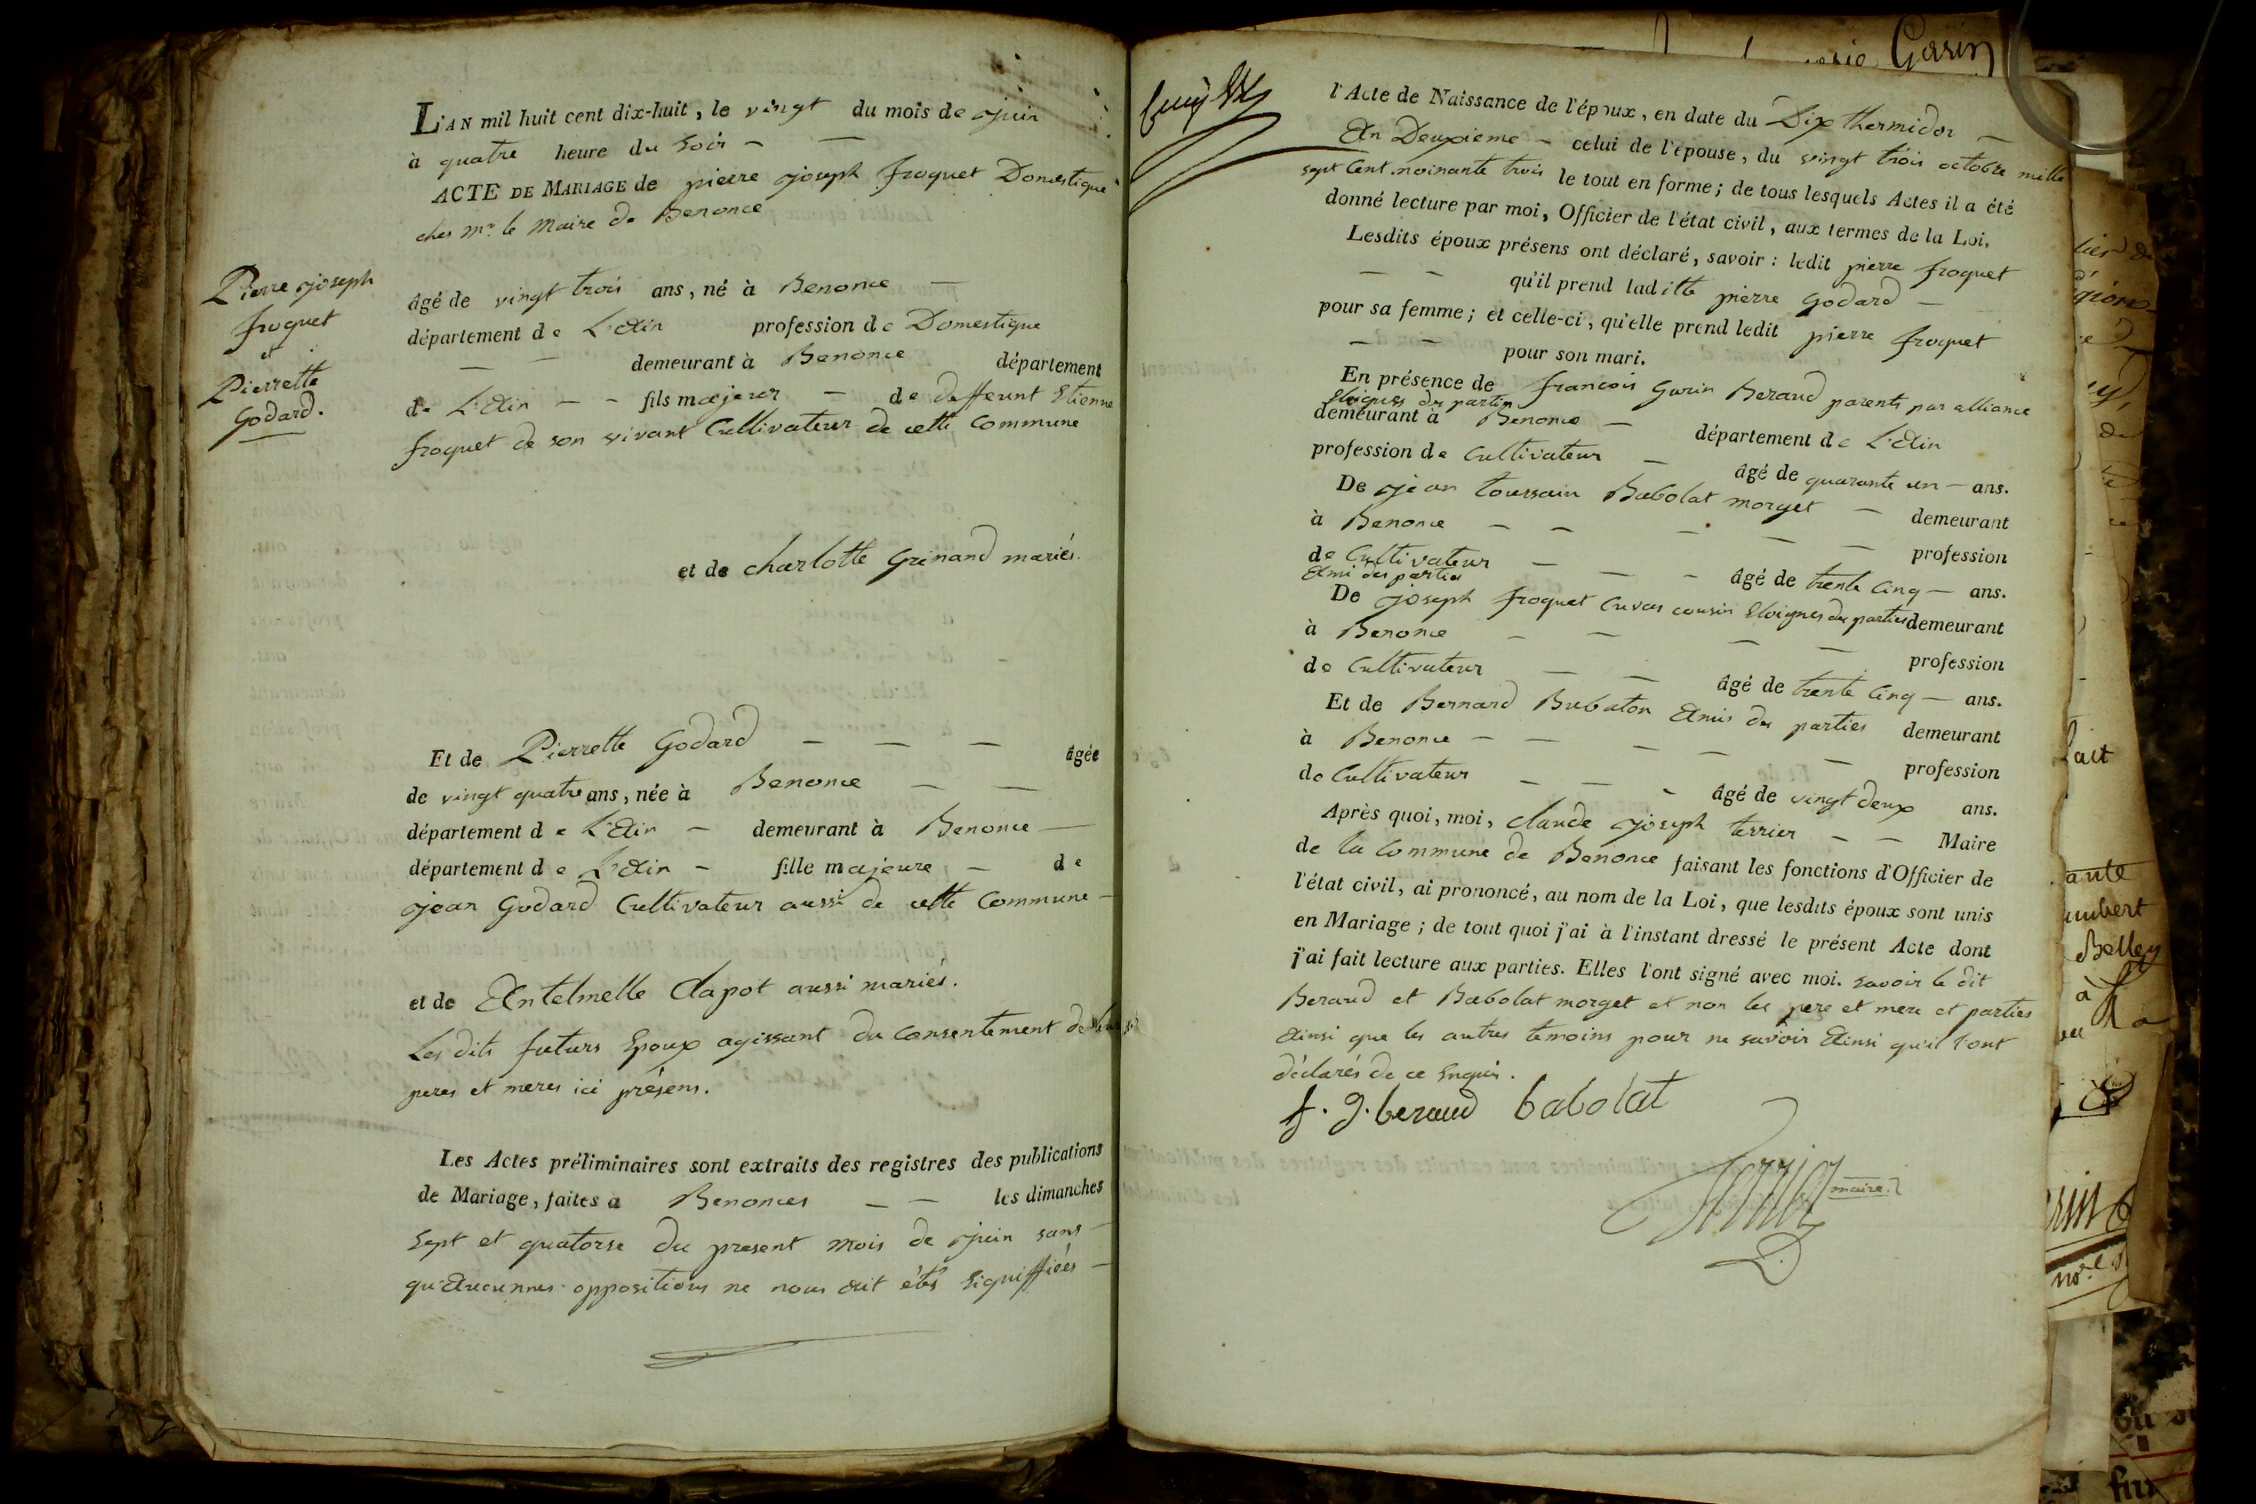 L'AN mil huit cent dix-huit, le vingt du mois de juin
à quatre heure du Soir –
ACTE DE MARIAGE de pierre joseph froquet Domestique
ches mr. le Maire de Benonce
Pierre joseph
froquet
et
Pierrette
Godard.
âgé de vingt trois ans, né à Benonce –
département de L'Ain profession de Domestique
– – demeurant à Benonce département
de L'Ain – – fils majeur – de deffeunt Etienne
froquet de son vivant Cultivateur de cette Commune
et de charlotte Grinand mariés.
Et de Pierrette Godard – – – âgée
de vingt quatre ans, née à Benonce – –
département de L'Ain – demeurant à Benonce –
département de L'Ain – fille majeure – de
jean Godard Cultivateur aussi de cette Commune –
et de Antelmelle Clapot aussi mariés.
Les dits futurs Epoux agissant du consentement de leurs
peres et meres ici présens.
Les Actes préliminaires sont extraits des registres des publications
de Mariage, faites a Benonces – – les dimanches
Sept et quatorse du present mois de juin sans –
qu'Aucunnes oppositions ne nous ait étés Signiffiées –
l'Acte de Naissance de l'époux, en date du Dix thermidor –
An Deuxieme – celui de l'épouse, du vingt trois octobre mille
sept Cent noinante trois le tout en forme; de tous lesquels Actes il a été
donné lecture par moi, Officier de l'état civil, aux termes de la Loi.
Lesdits époux présens ont déclaré, savoir : ledit pierre froquet
– – qu'il prend laditte pierre Godard –
pour sa femme; et celle-ci, qu'elle prend ledit pierre froquet
– – pour son mari.
En présence de francois Garin Beraud parents par alliance
Eloignes des parties
demeurant à Benonce – département de L'Ain
profession de Cultivateur – âgé de quarante un – ans.
De jean toussain Babolat morget – demeurant
à Benonce – – – – – profession
de Cultivateur – – – âgé de trente Cinq – ans.
Ami des parties
De joseph froquet Cuvas cousin Eloignes des parties demeurant
à Benonce – – – – profession
de Cultivateur – – âgé de trente Cinq – ans.
Et de Bernard Bubaton Amis des parties demeurant
à Benonce – – – – – profession
de Cultivateur – – – âgé de vingt deux ans.
Après quoi, moi, claude joseph terrier – – Maire
de la Commune de Benonce faisant les fonctions d'Officier de
l'état civil, ai prononcé, au nom de la Loi, que lesdits époux sont unis
en Mariage; de tout quoi j'ai à l'instant dressé le présent Acte dont
j'ai fait lecture aux parties. Elles l'ont signé avec moi. savoir le dit
Beraud et Babolat morget et non les pere et mere et parties
Ainsi que les autres temoins pour ne savoir Ainsi qu'il l'ont
déclarés de ce Enquis.
f. g. beraud babolat
Terrier maire
Garin
Belley